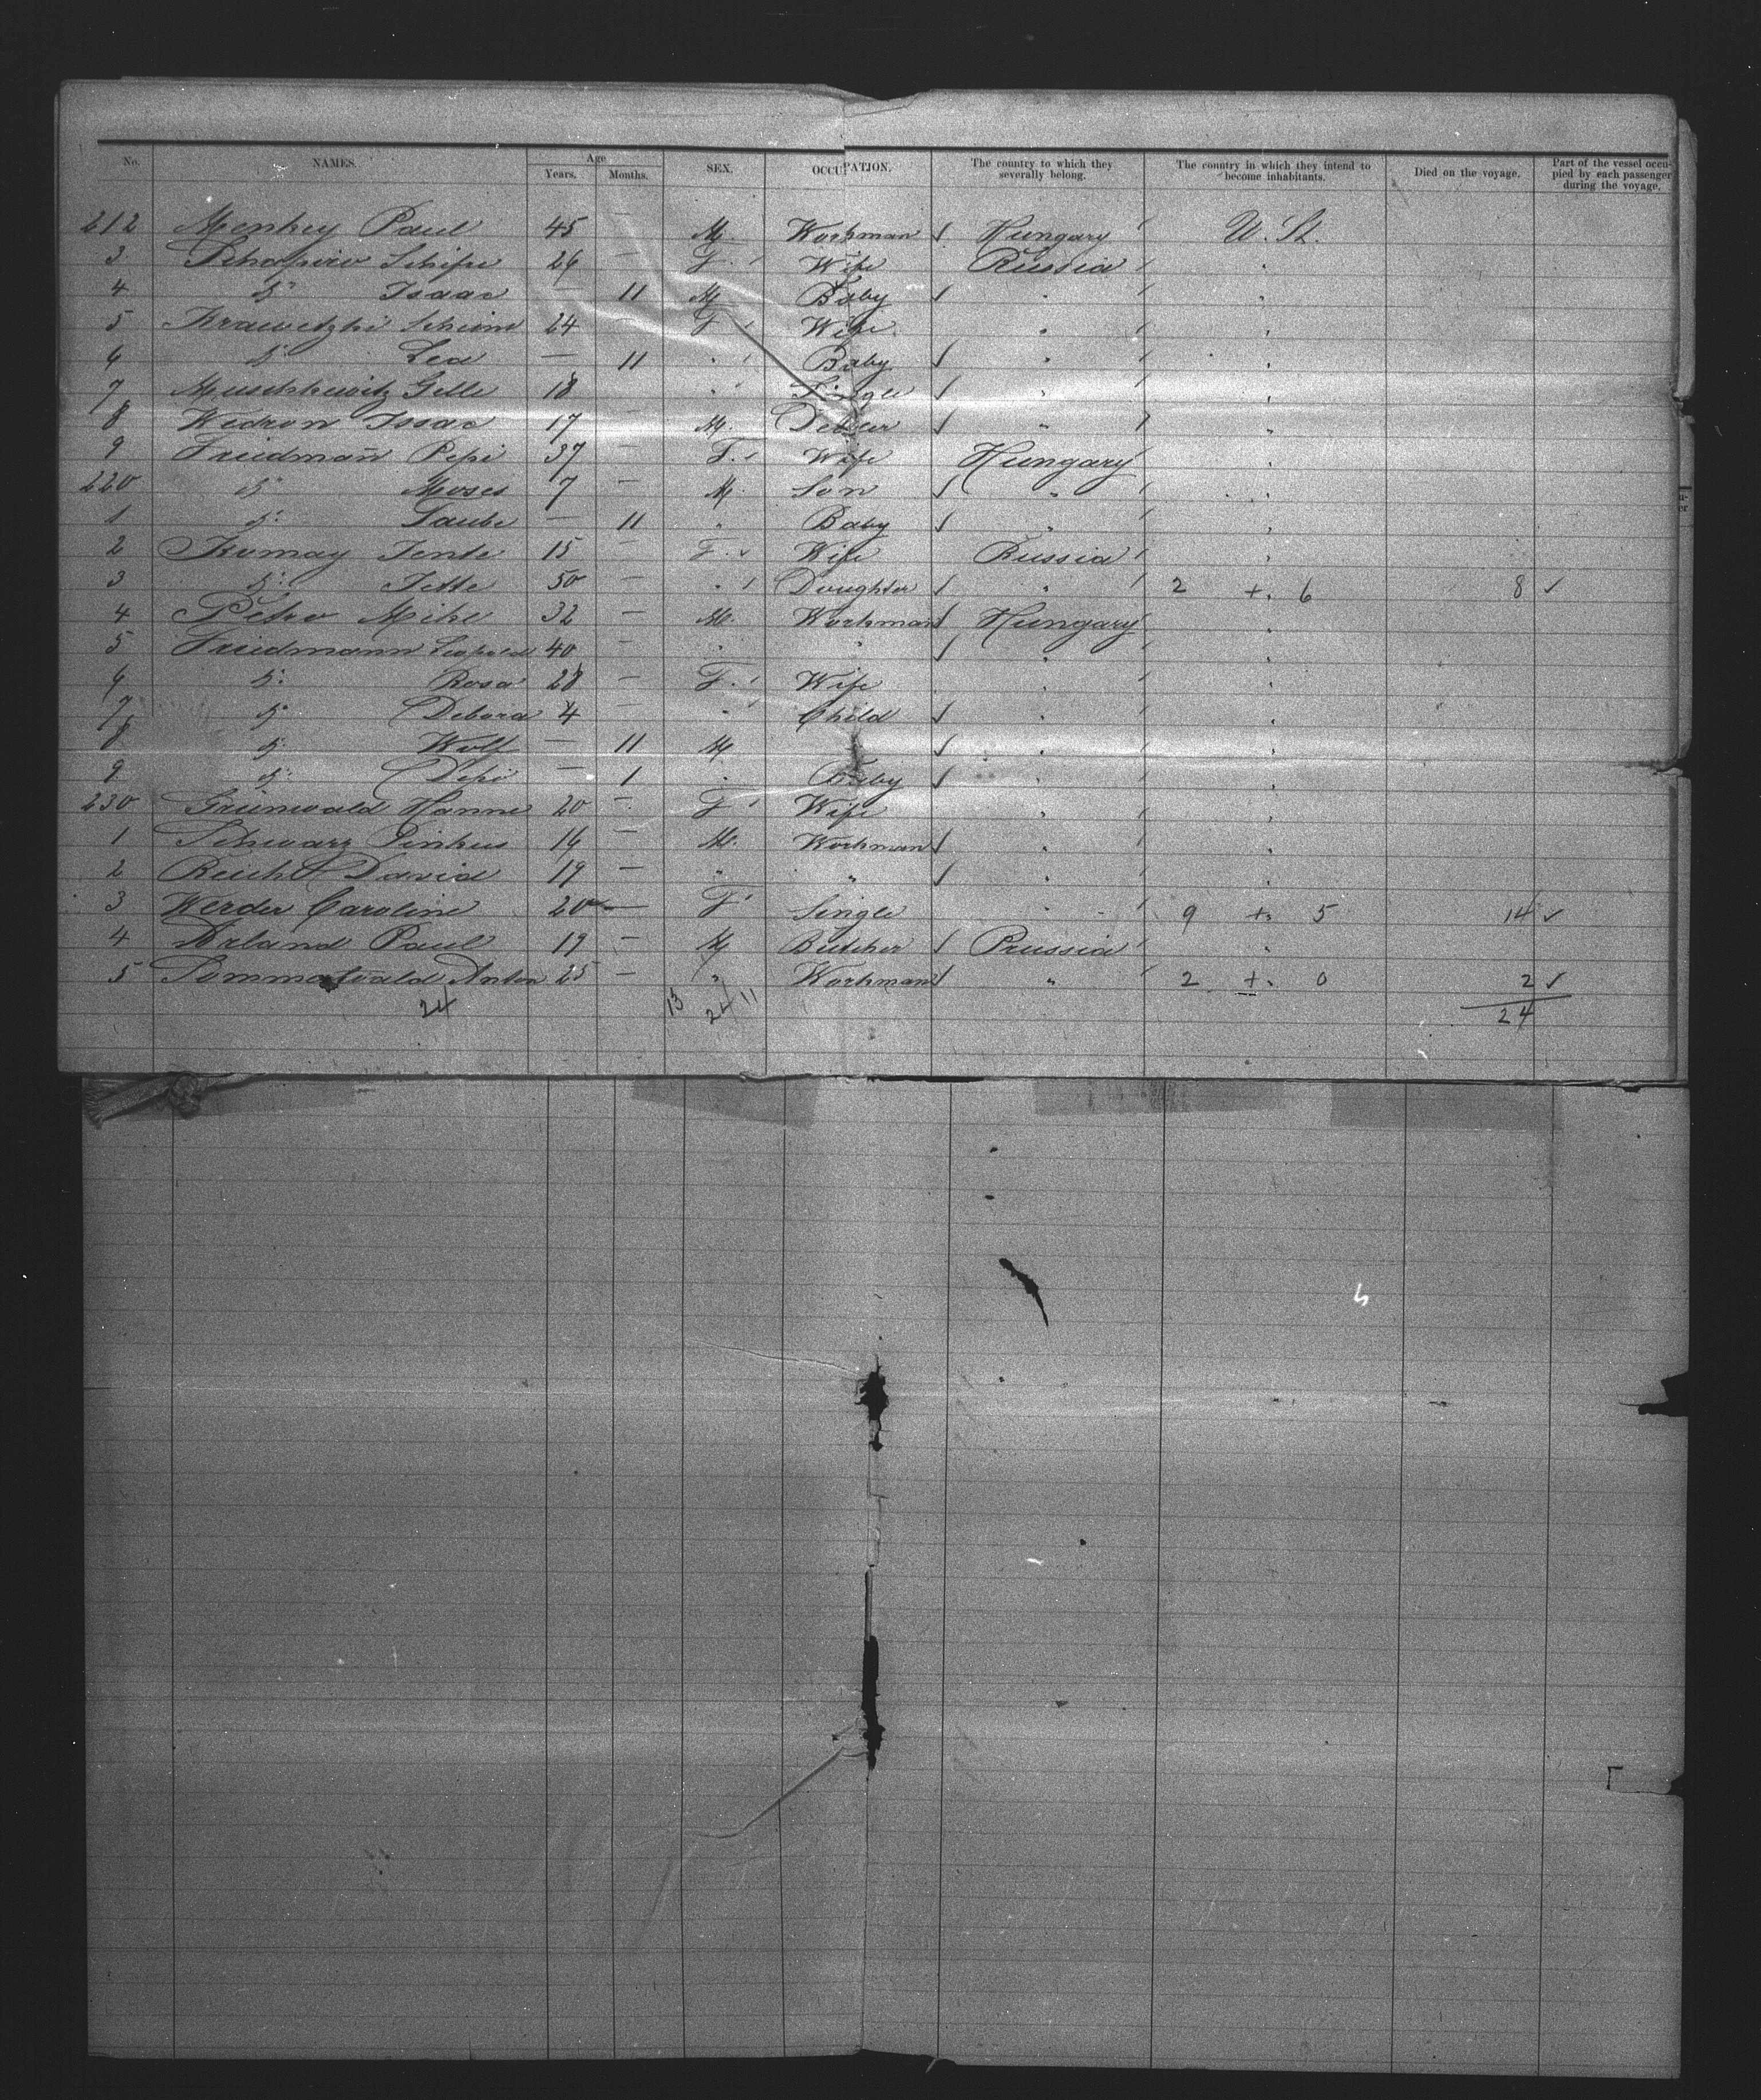 No. NAMES. Age Years. Months. SEX. OCCUPATION. The country to which they severally belong. The country in which they intend to become inhabitants. Died on the voyage. Part of the vessel occupied by each passenger during the voyage.
212 Menhey Paul 45 — M. Workman Hungary U. St.
3 Schapiro Schipe 26 — F. Wife Russia "
4 d° Isaac — 11 M Baby " "
5 Krawetzki Scheine 24 — F Wife " "
6 d° Lea — 11 " Baby " "
7 Muschkewitz Gelle 18 " Single " "
8 Wedron Issac 17 — M. Dealer " "
9 Friedman̄ Pepi 37 — F. Wife Hungary "
220 d° Moses 7 — M. Son " "
1 d° Taube — 11 " Baby " "
2 Kumay Jente 15 — F. Wife Russia "
3 d° Jette 50 — " Doughter " 2 + 6 8 ✓
4 Petro Mike 32 — M. Workman Hungary "
5 Friedmann Leopold 40 — " " " "
6 d° Rosa 28 — F. Wife " "
7 d° Debora 4 — " Child " "
8 d° Wolf — 11 M " "
9 d° Pepi — 1 " Baby " "
230 Grünwald Hanne 20 — F Wife " "
1 Schwarz Pinkus 16 — M. Workman " "
2 Reicht David 19 — " " " "
3 Werder Caroline 20 — F Single " 9 + 5 14 ✓
4 Arland Paul 19 — M Butcher Prussia "
5 Sommerwald Anton 25 — " Workman " 2 + 0 2 ✓
24 13 24 11 24